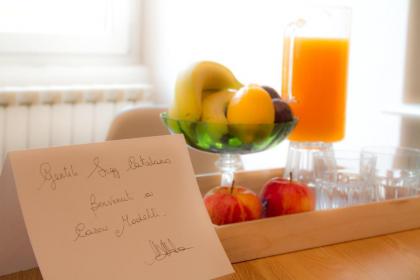 Gentile Sigg Catalano
Benvenuti a
Casa Modelli.